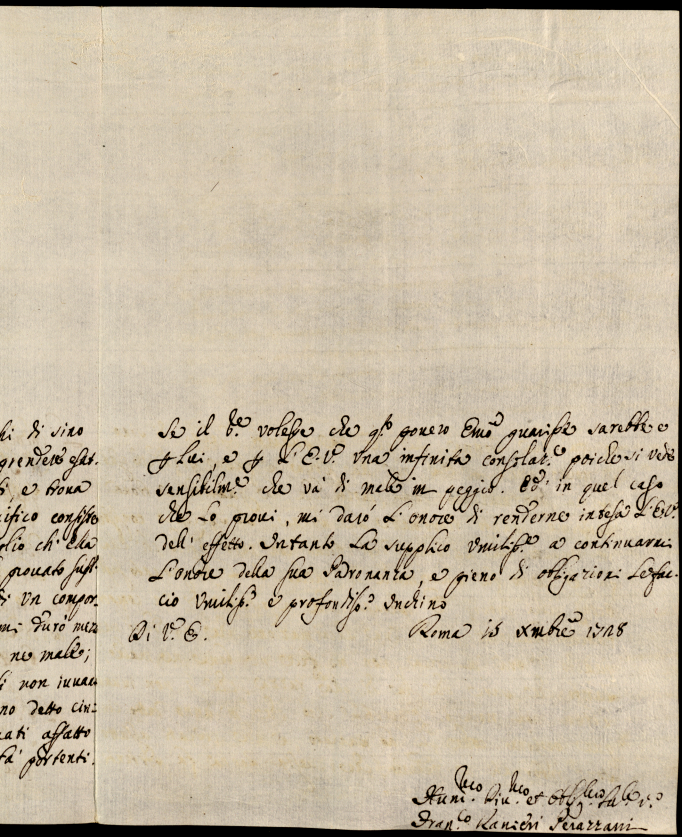 hi di sino
prendere esat.
e trova
ifico consiste
glio ch'ella
provato
di un compor
mi durò mez
ne male;
li non iuuan
no detto cin:
uati affatto
tà portenti.
Se il Sre. volesse che qsto povero Emo guarisse sarebbe e
p Lui, e p L'E.V. una infinita consolat.e poiche si vede
sensibilm.e che và di male in peggio. Ed in quel caso
che Lo provi, mi darò L'onore di renderne intesa L'E.V.
dell'effetto. Intanto La supplico umiliss.e a continuarmi
L'onore della sua Padronanza, e pieno di obligazioni Le fac-
cio umiliss.o e profondiss.o Inchino
Di V.E.
Roma 15 Xmbre 1728
Hum.o Div.o et Obl.o
Fran.co Ranieri Perazzani